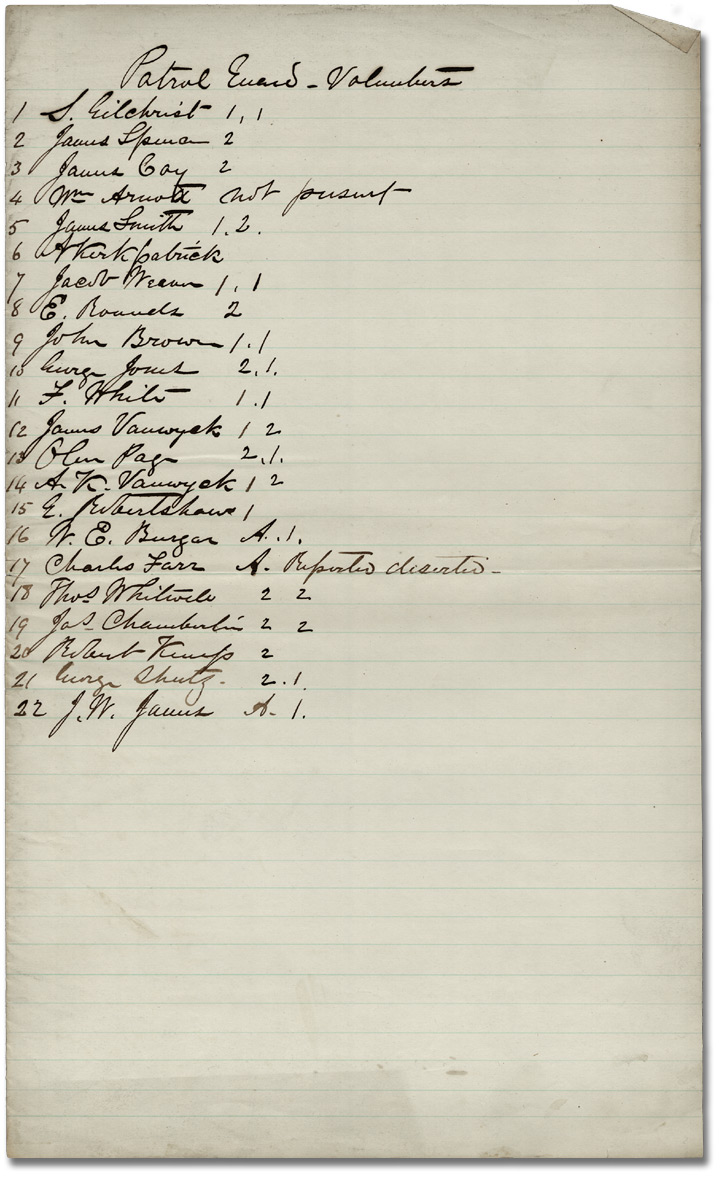 Patrol Guard - Volunteers
1 S. Gilchrist 1, 1
2 James Spencer 2
3 James Coy 2
4 Wm Arnold not present
5 James Smith 1. 2.
6 A Kirkpatrick
7 Jacob Weaver 1, 1
8 E. Rounds 2
9 John Brown 1. 1
10 George Jones 2. 1.
11 F. White 1. 1
12 James Vanwyck 1 2
13 Olen Page 2. 1.
14 A. K. Vanwyck 1 2
15 E. Robertshaw 1
16 W. E. Burgar A. 1.
17 Charles Farr A. Reported deserted -
18 Thos Whitwell 2 2
19 Jas Chamberlin 2 2
20 Robert Kemp 2
21 George Shutz - 2. 1
22 J. W. James A - 1.